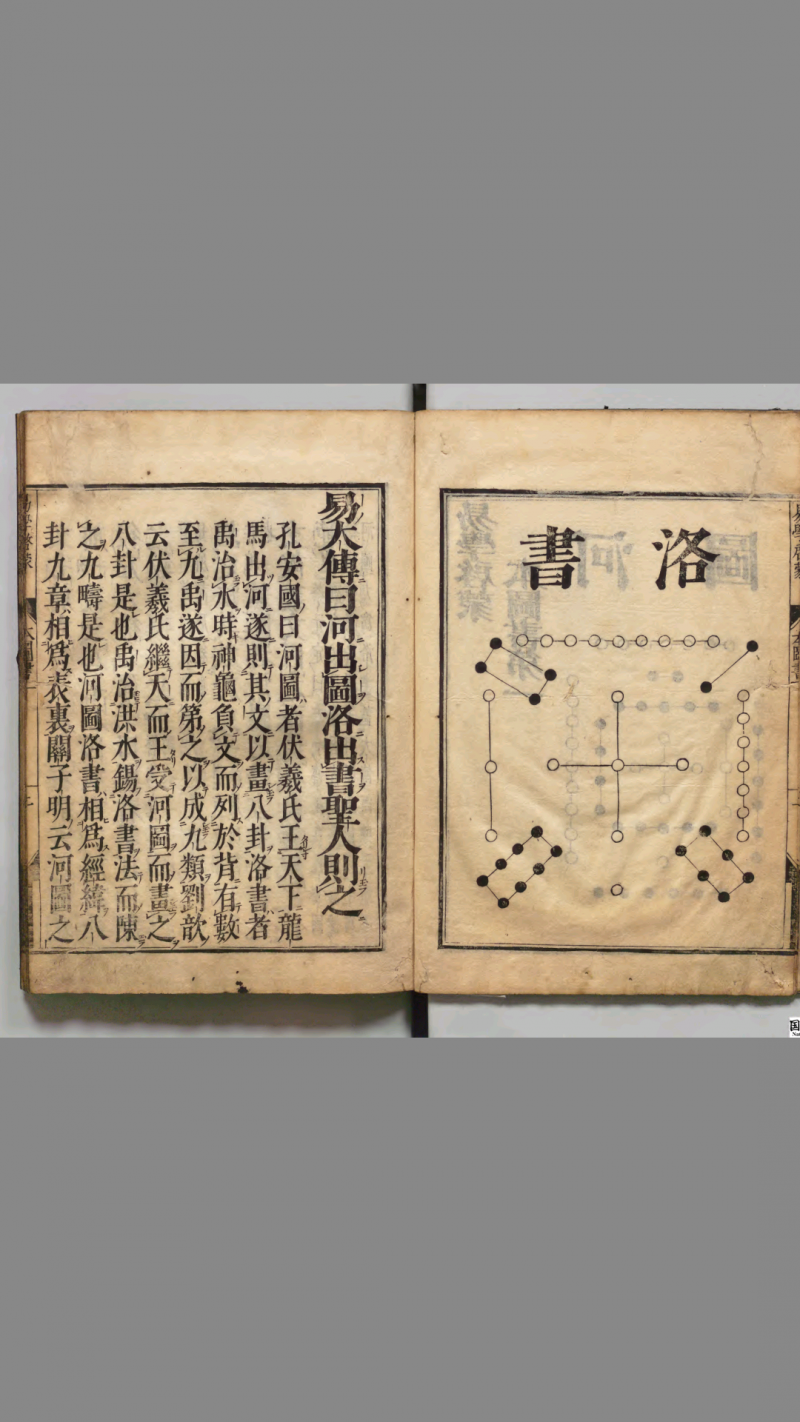 洛書
易大傳曰河出圖洛出書聖人則之
孔安國曰河圖者伏羲氏王天下龍
馬出河遂則其文以畫八卦洛書者
禹治水時神龜負文而列於背有數
至九禹遂因而第之以成九類劉歆
云伏羲氏繼天而王受河圖而畫之
八卦是也禹治洪水錫洛書法而陳
之九疇是也河圖洛書相爲經緯八
卦九章相爲表裏關子明云河圖之